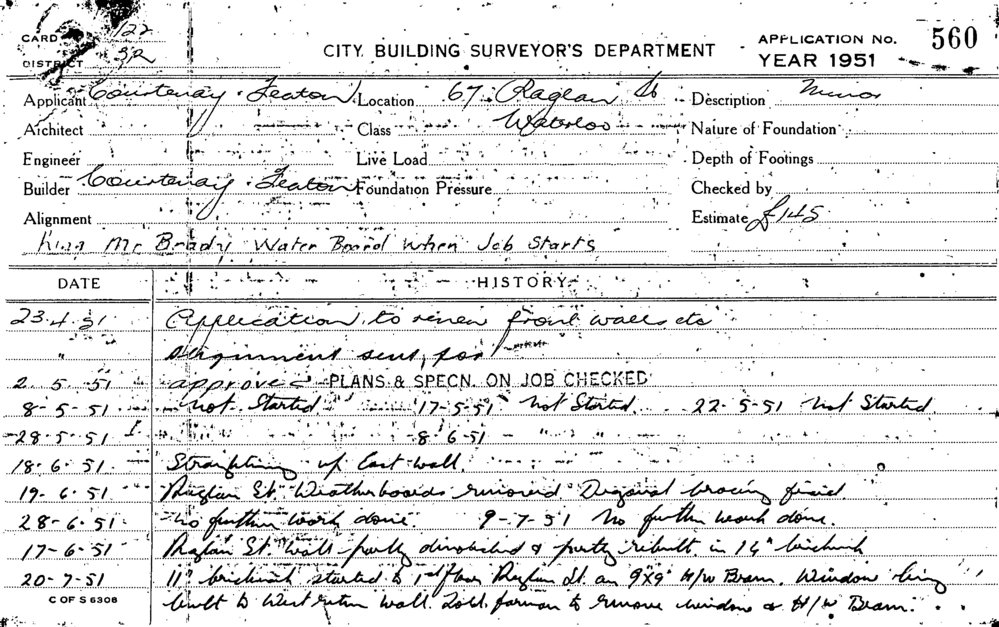 CARD 122
DISTRICT 3R
CITY BUILDING SURVEYOR'S DEPARTMENT
APPLICATION No. 560
YEAR 1951
Applicant Courtenay Seaton Location 67 Raglan St Description Minor
Architect Class Waterloo Nature of Foundation
Engineer Live Load Depth of Footings
Builder Courtenay Seaton Foundation Pressure Checked by
Alignment Estimate £145
Ring Mc Brady Water Board When Job Starts
DATE HISTORY
23.4.51 Application to renew front walls etc
" Alignment sent for
2.5.51 approved PLANS & SPECN. ON JOB CHECKED
8-5-51 not Started 17-5-51 Not Started 22-5-51 Not Started
28.5.51 " " 8-6-51 " "
18.6.51 Straighting up East wall.
19.6.51 Raglan St. Weatherboards removed Diagonal bracing fixed.
28-6.51 No further work done. 9-7-51 No further work done.
17-6-51 Raglan St. Wall partly demolished & partly rebuilt in 14" brickwork
20-7-51 11" brickwork started to 1st floor Raglan St. on 9x9" H/W Beam. Window being
built to West return wall. Told forman to remove window & H/W Beam.
C OF S 6306